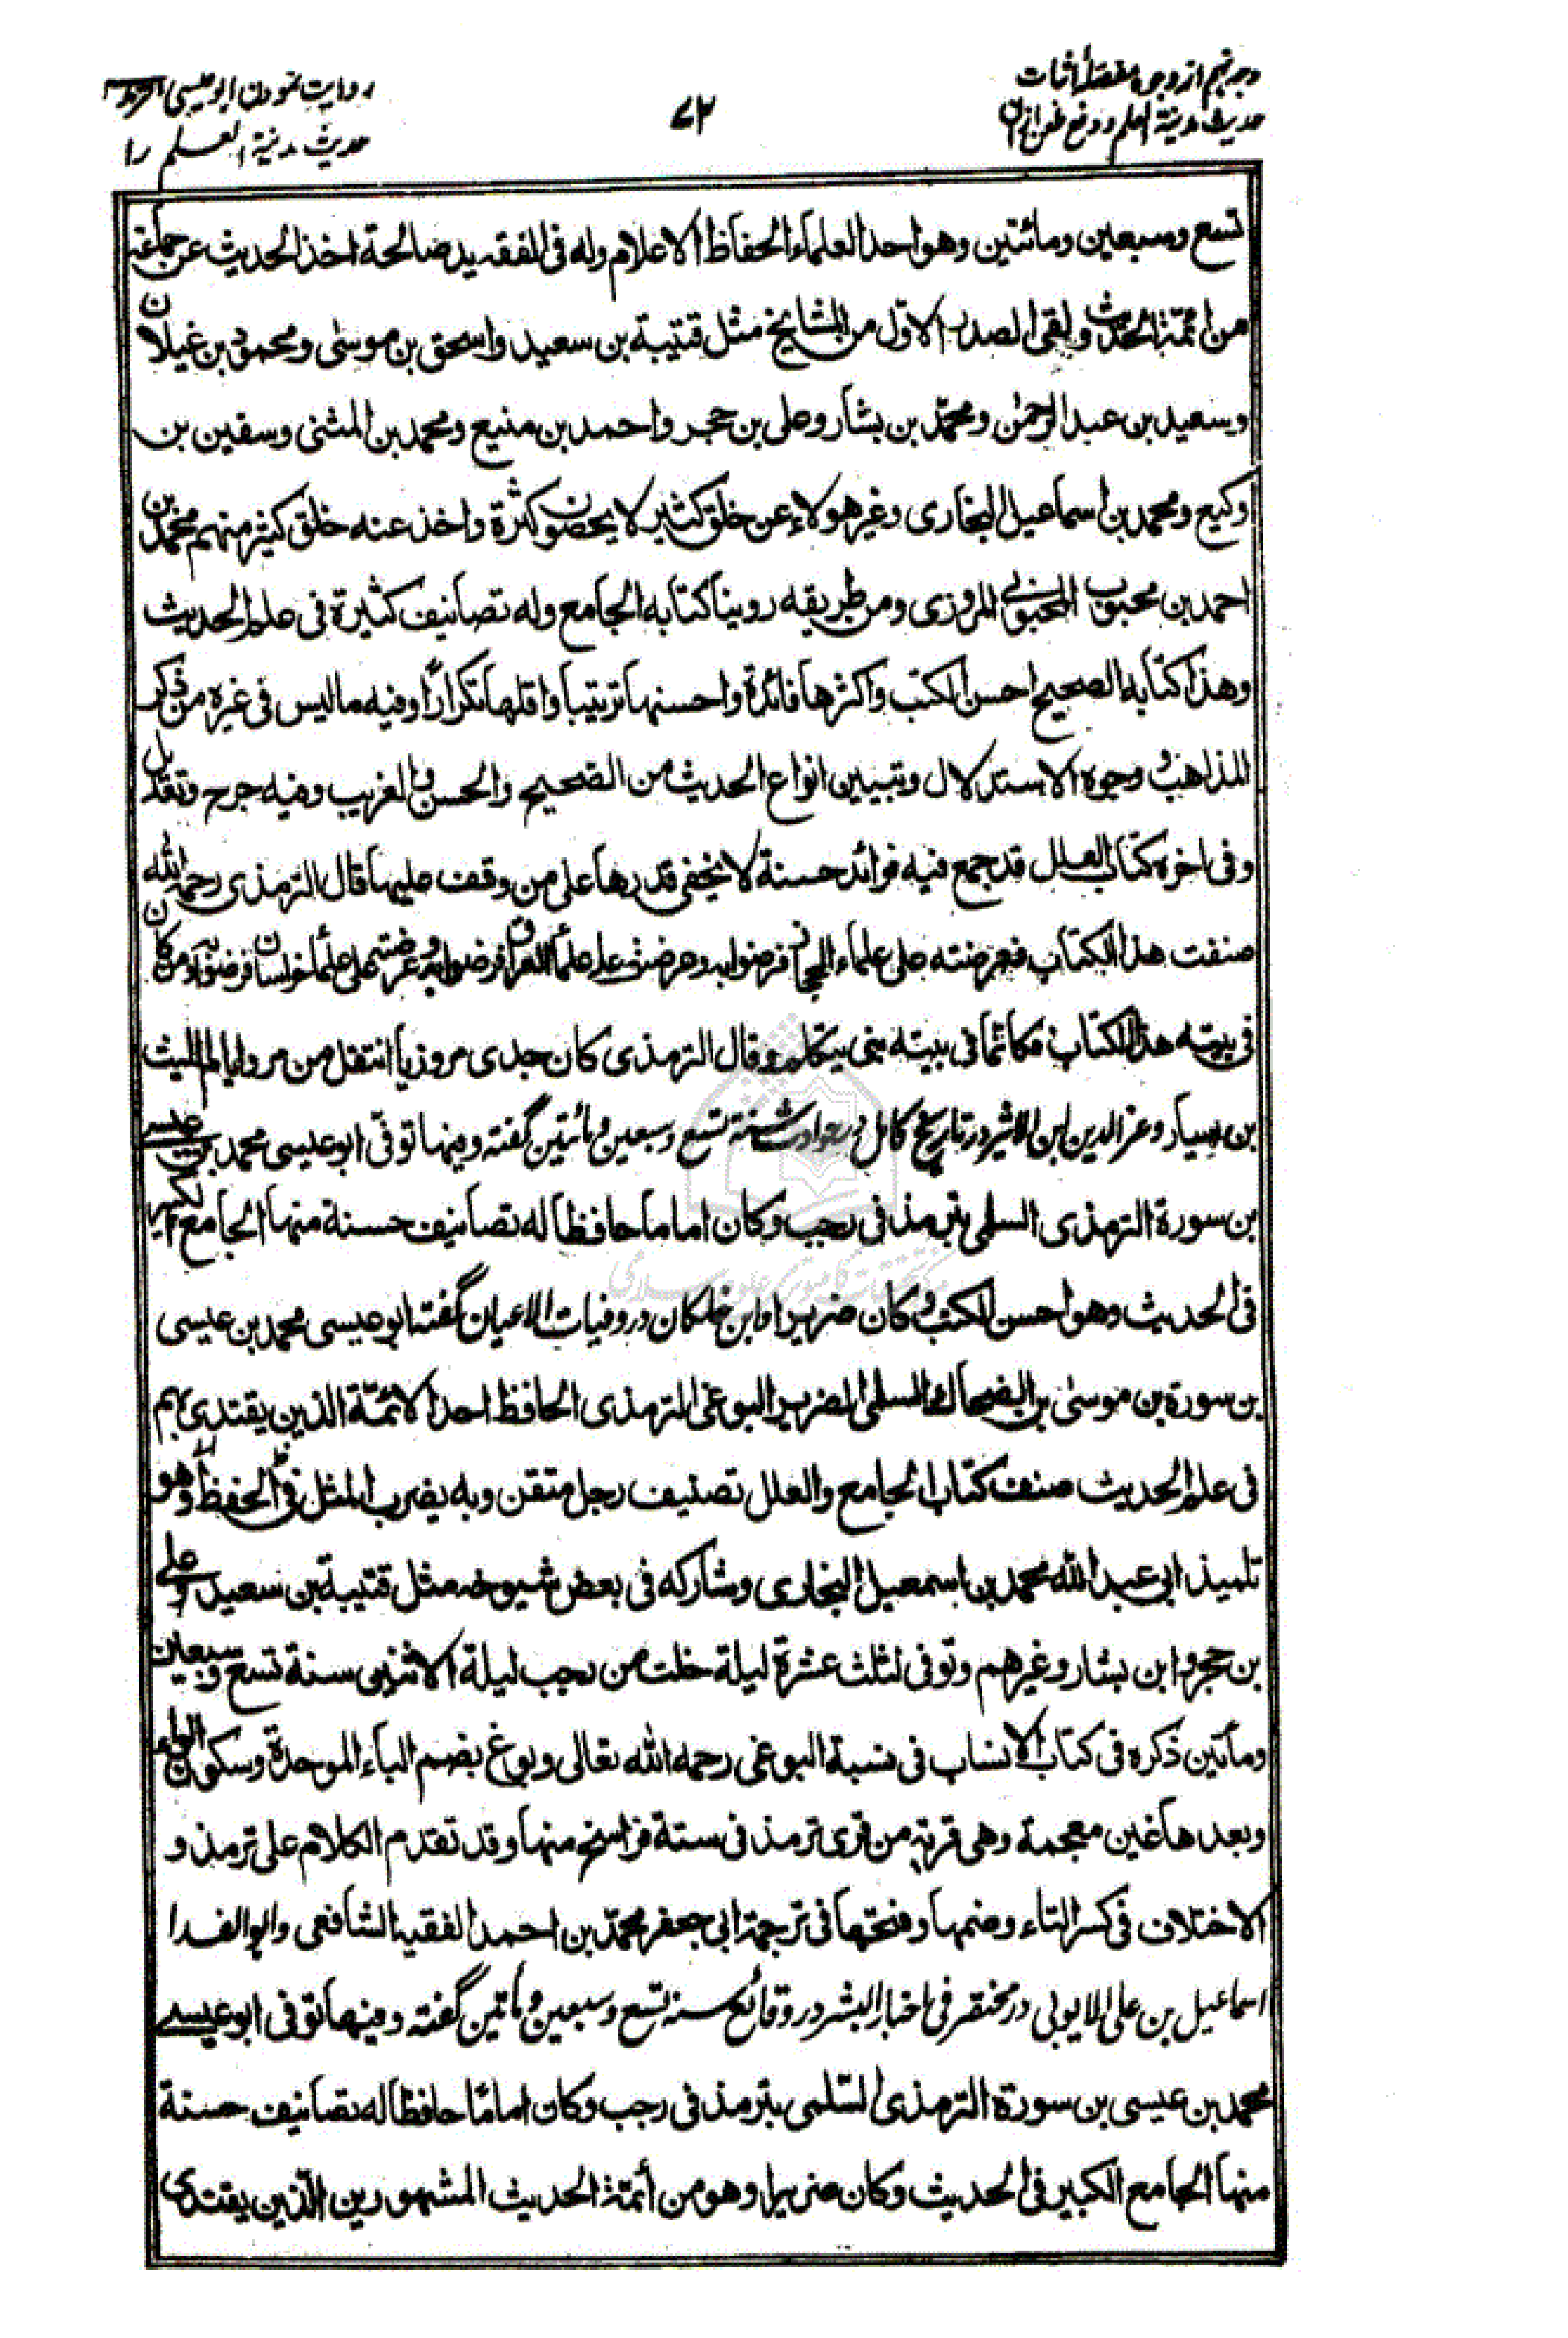 وجه نهم از وجوه مفصلهٔ اثبات
حدیث مدینة العلم و دفع طعن
۷۲
روایت نمودن ابو عیسی الترمذی
حدیث مدینة العلم را
تسع وسبعین ومائتین وهو احد العلماء الحفاظ الاعلام وله فی الفقه ید صالحة اخذ الحدیث عن جماعة
من ائمة الحدیث ولقی الصدر الاوّل من المشایخ مثل قتیبة بن سعید واسحق بن موسٰی ومحمود بن غیلان
وسعید بن عبد الرحمٰن ومحمّد بن بشار وعلی بن حجر واحمد بن منیع ومحمد بن المثنی وسفین بن
وکیع ومحمد بن اسماعیل البخاری وغیر هولاء عن خلق کثیر لا یحصون کثرة واخذ عنه خلق کثیر منهم محمد بن
احمد بن محبوب المحبوبی المروزی ومن طریقه روینا کتابه الجامع وله تصانیف کثیرة فی علم الحدیث
وهذا کتابه الصحیح احسن الکتب واکثرها فائدة واحسنها ترتیبا واقلها تکرارًا وفیه ما لیس فی غیره من ذکر
المذاهب ووجوه الاستدلال وتبیین انواع الحدیث من الصحیح والحسن والغریب وفیه جرح وتعدیل
وفی اخره کتاب العلل قد جمع فیه فوائد حسنة لا یخفی قدرها علی من وقف علیها قال الترمذی رحمه الله
صنفت هذا الکتاب فعرضته علی علماء الحجاز فرضوا به وعرضته علی علماء العراق فرضوا به وعرضته علی علماء خراسان فرضوا به ومن کان
فی بیته هذا الکتاب فکانما فی بیته نبی یتکلم وقال الترمذی کان جدی مروزیا انتقل من مرو ایام اللیث
بن سیار وعز الدین ابن الاثیر در تاریخ کامل در حوادث سنة تسع وسبعین ومائتین گفته وفیها توفی ابو عیسی محمد بن عیسی
بن سورة الترمذی السلمی بترمذ فی رجب وکان اماما حافظا له تصانیف حسنة منها الجامع الکبیر
فی الحدیث وهو احسن الکتب وکان ضریرا وابن خلکان در وفیات الاعیان گفته ابو عیسی محمد بن عیسی
بن سورة بن موسٰی بن الضحاک السلمی الضریر البوغی الترمذی الحافظ احد الائمّة الذین یقتدی بهم
فی علم الحدیث صنف کتاب الجامع والعلل تصنیف رجل متقن وبه یضرب المثل فی الحفظ وهو
تلمیذ ابی عبد الله محمد بن اسمعیل البخاری وشارکه فی بعض شیوخه مثل قتیبة بن سعید وعلی
بن حجر وابن بشار وغیرهم وتوفی لثلث عشرة لیلة خلت من رجب لیلة الاثنین سنة تسع وسبعین
ومأتین ذکره فی کتاب الانساب فی نسبة البوغی رحمه الله تعالی وبوغ بضم الباء الموحدة وسکون الواو
وبعدها غین معجمة وهی قریة من قری ترمذ فی ستة فراسخ منها وقد تقدم الکلام علی ترمذ و
الاختلاف فی کسر التاء وضمها وفتحها فی ترجمة ابی جعفر محمّد بن احمد الفقیه الشافعی وابو الفدا
اسماعیل بن علی الایوبی در مختصر فی اخبار البشر در وقائع سنه تسع وسبعین ومأتین گفته وفیها توفی ابو عیسی
محمد بن عیسی بن سورة الترمذی السّلمی بترمذ فی رجب وکان امامًا حافظا له تصانیف حسنة
منها الجامع الکبیر فی الحدیث وکان ضریرا وهو من أئمّة الحدیث المشهورین الّذین یقتدی